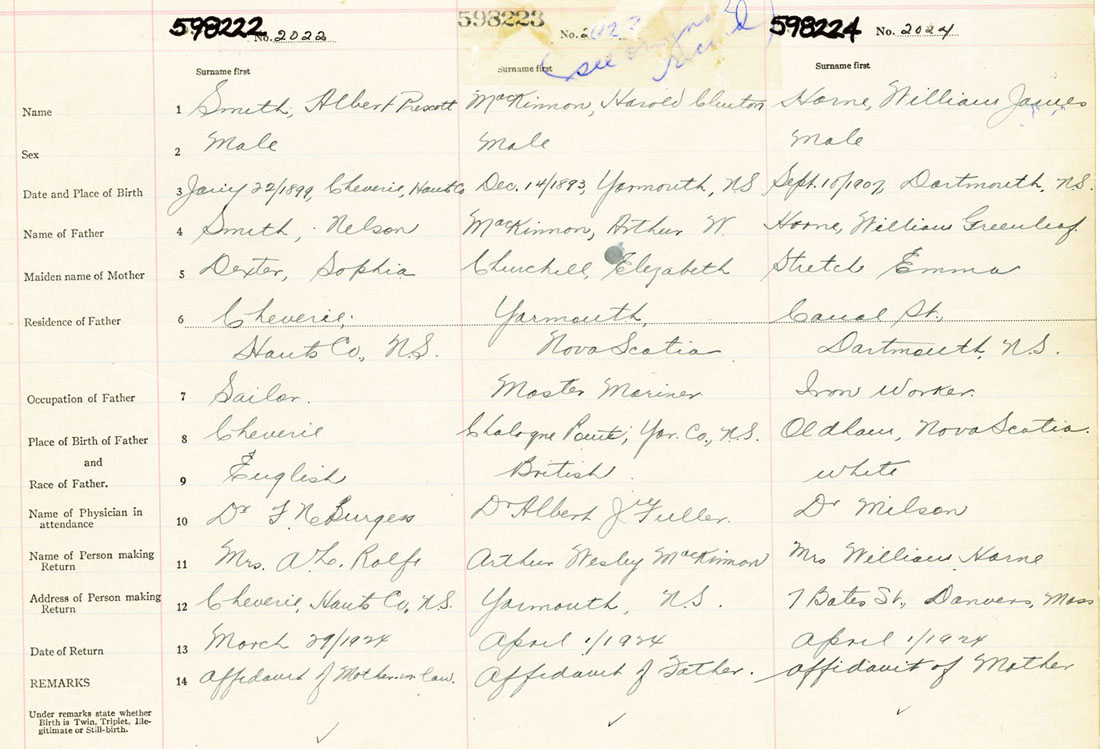 598222 No. 2022 598223 No. 2023 598224 No. 2024
(see original record)
Surname first Surname first Surname first
Name 1 Smith, Albert Prescott MacKinnon, Harold Clinton Horne, William James
Sex 2 Male Male Male
Date and Place of Birth 3 Jan'y 22/1899, Cheverie, Hants Co Dec. 14/1893, Yarmouth, NS Sept. 10/1907, Dartmouth, N.S.
Name of Father 4 Smith, Nelson MacKinnon, Arthur W. Horne, William Greenleaf
Maiden name of Mother 5 Dexter, Sophia Churchill, Elizabeth Stretch Emma
Residence of Father 6 Cheverie, Yarmouth, Canal St.,
Hants Co., N.S. Nova Scotia Dartmouth, N.S.
Occupation of Father 7 Sailor. Master Mariner Iron Worker.
Place of Birth of Father 8 Cheverie Point, Yar. Co., N.S. Oldham, Nova Scotia.
and
Race of Father. 9 English British white
Name of Physician in
attendance 10 Dr Burgess Dr Albert J. Fuller. Dr Milson
Name of Person making
Return 11 Mrs. A. L. Rolfe Arthur Wesley MacKinnon Mrs William Horne
Address of Person making
Return 12 Cheverie, Hants Co, N.S. Yarmouth, N.S. 7 Bates St., Danvers, Mass
Date of Return 13 March 29/1924 April 1/1924 April 1/1924
REMARKS 14 Affidavit of Mother-in-law. Affidavit of Father. Affidavit of Mother
Under remarks state whether
Birth is Twin, Triplet, Ille-
gitimate or Still-birth.